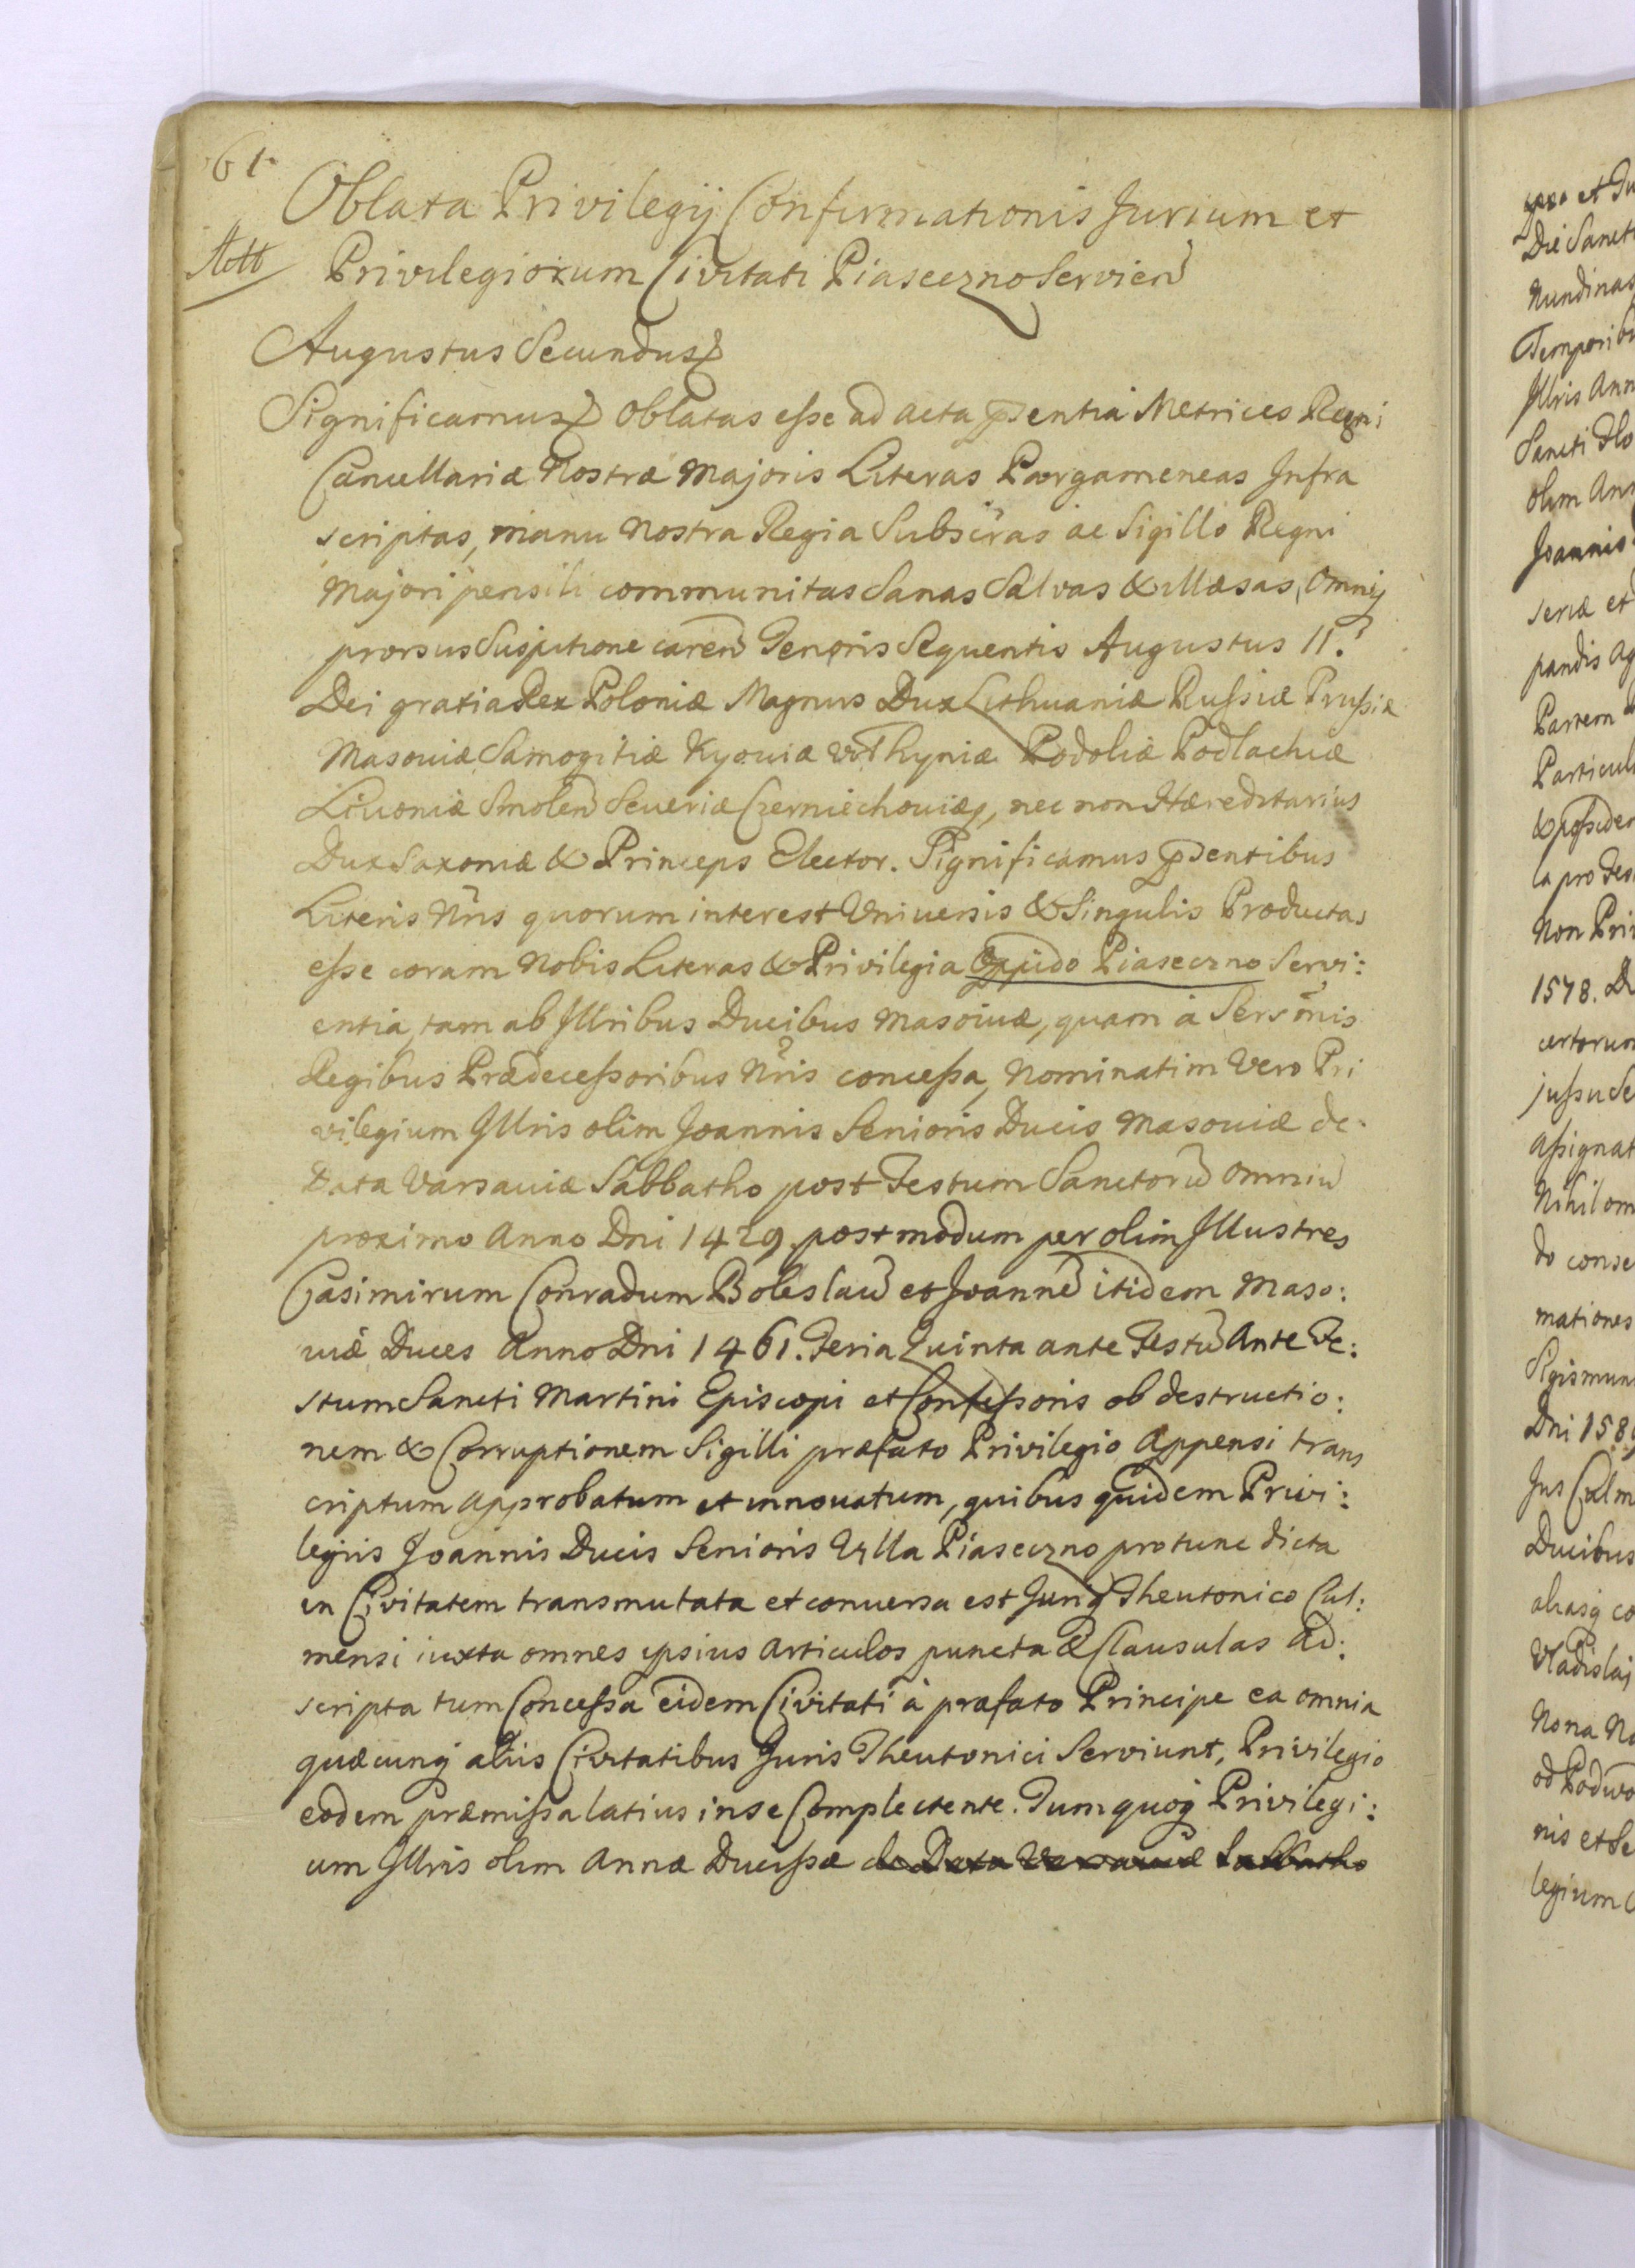 61
Oblata Privilegij Confirmationis Jurium et
Privilegiorum Civitati Piaseczno Servien
Augustus Secundus
Significamus Oblatas esse ad acta psentia Metrices Regni
Cancellariæ Nostræ Majoris Literas Pargameneas Infra
scriptas, manu Nostra Regia Subscras ac Sigillo Regni
Majori pensili communitas Sanas Salvas & illæsas, Omniq
prorsus Suspitione caren Tenoris Sequentis Augustus II.
Dei gratia Rex Poloniæ Magnus Dux Lithuaniæ Russiæ Prussiæ
Masoviæ Samogitiæ Kyoviæ Volhyniæ Podoliæ Podlachiæ
Livoniæ Smolen Severiæ Czerniechoviæq, nec non Hæreditarius
Dux Saxoniæ & Princeps Elector. Significamus psentibus
Literis Nris quorum interest Universis & Singulis Productas
esse coram Nobis Literas & Privilegia Oppido Piaseczno Servi:
entia, tam ab Illribus Ducibus Masoviæ, quam à Sersmis
Regibus Prædecessoribus Nris concessa, Nominatim Vero Pri
vilegium Illris olim Joannis Senioris Ducis Masoviæ de
Data Varsaviæ Sabbatho post Festum Sanctoru Omniu
proximo Anno Dni 1429 postmodum per olim Illustres
Casimirum Conradum Boleslau et Joanne itidem Maso:
uiæ Duces Anno Dni 1461. Feria Quinta ante Festu Ante Fe:
stum Sancti Martini Episcopi et Confessoris ob destructio:
nem & Corruptionem Sigilli præfato Privilegio Appensi trans
criptum approbatum et innovatum, quibus quidem Privi:
legiis Joannis Ducis Senioris Villa Piaseczno protunc dicta
in Civitatem transmutata et conversa est Juriq Theutonico Cul:
mensi iuxta omnes ipsius Articulos puncta & Clausulas Ad:
scripta tum Concessa eidem Civitati à præfato Principe ea omnia
quæcunq aliis Civitatibus Juris Theutonici Serviunt, Privilegio
eodem præmissa latius in se Complectente. Tum quoq Privilegi:
um Illris olim Annæ Ducissæ de Data Varsaviæ Sabbatho